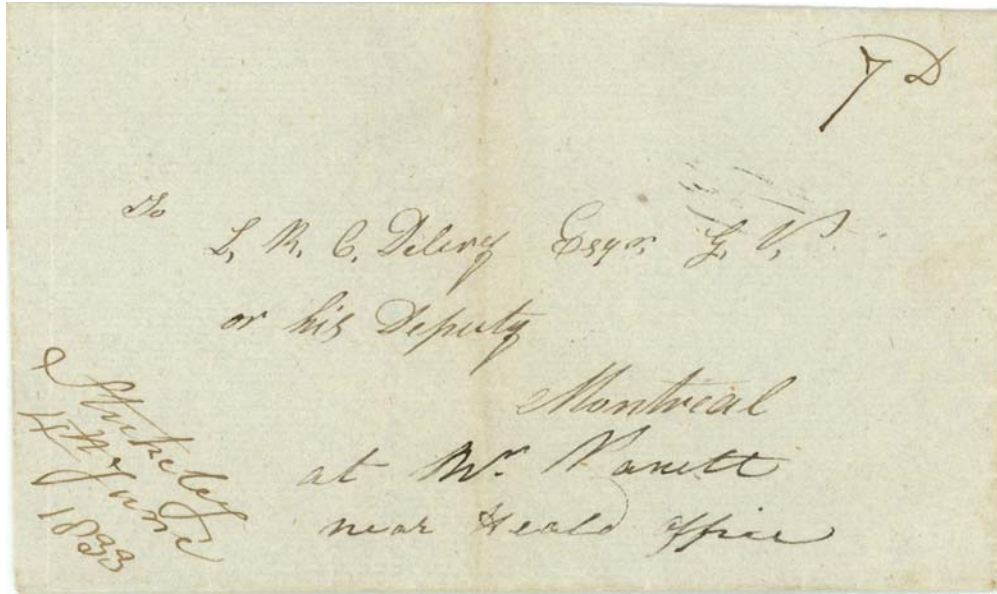 7 D
To
L. R. C. Delery Esqr. G. V.
or his Deputy
Montreal
at Mr.
near Herald office
Stukely
4th June
1833